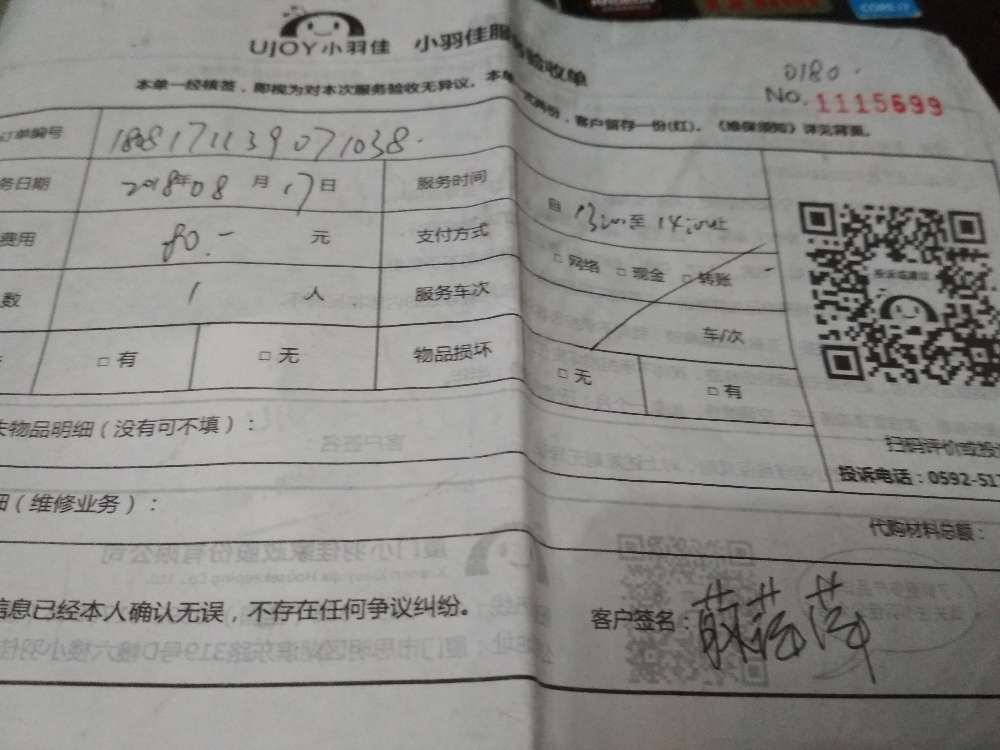 UJOY小羽佳 小羽佳服务验收单
0180.
No. 1115699
本单一经核签，即视为对本次服务验收无异议。本单一式两份，客户留存一份(红)。《维保须知》详见背面。
订单编号 1808171139071038.
务日期 2018年08月17日 服务时间 自13:00至14:00止
费用 80.- 元 支付方式 □网络 □现金 □转账
数 1 人 服务车次 车/次
□有 □无 物品损坏 □无 □有
投诉或建议
失物品明细（没有可不填）：
扫码评价或投
投诉电话：0592-517
细（维修业务）：
代购材料总额：
信息已经本人确认无误，不存在任何争议纠纷。
客户签名：